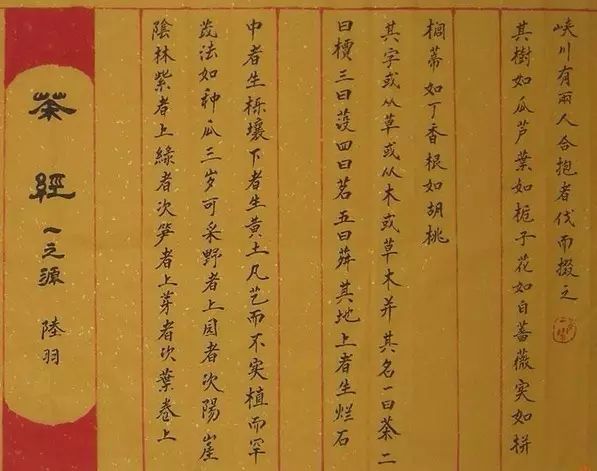 峡川有兩人合抱者伐而掇之
其樹如瓜芦葉如栀子花如白薔薇实如栟
榈蒂如丁香根如胡桃
其字或从草或从木或草木并其名一曰茶二
曰檟三曰蔎四曰茗五曰荈其地上者生烂石
中者生栎壤下者生黄土凡艺而不实植而罕
茂法如种瓜三岁可采野者上园者次陽崖
陰林紫者上緑者次笋者上芽者次葉卷上
茶經 一之源 陸羽